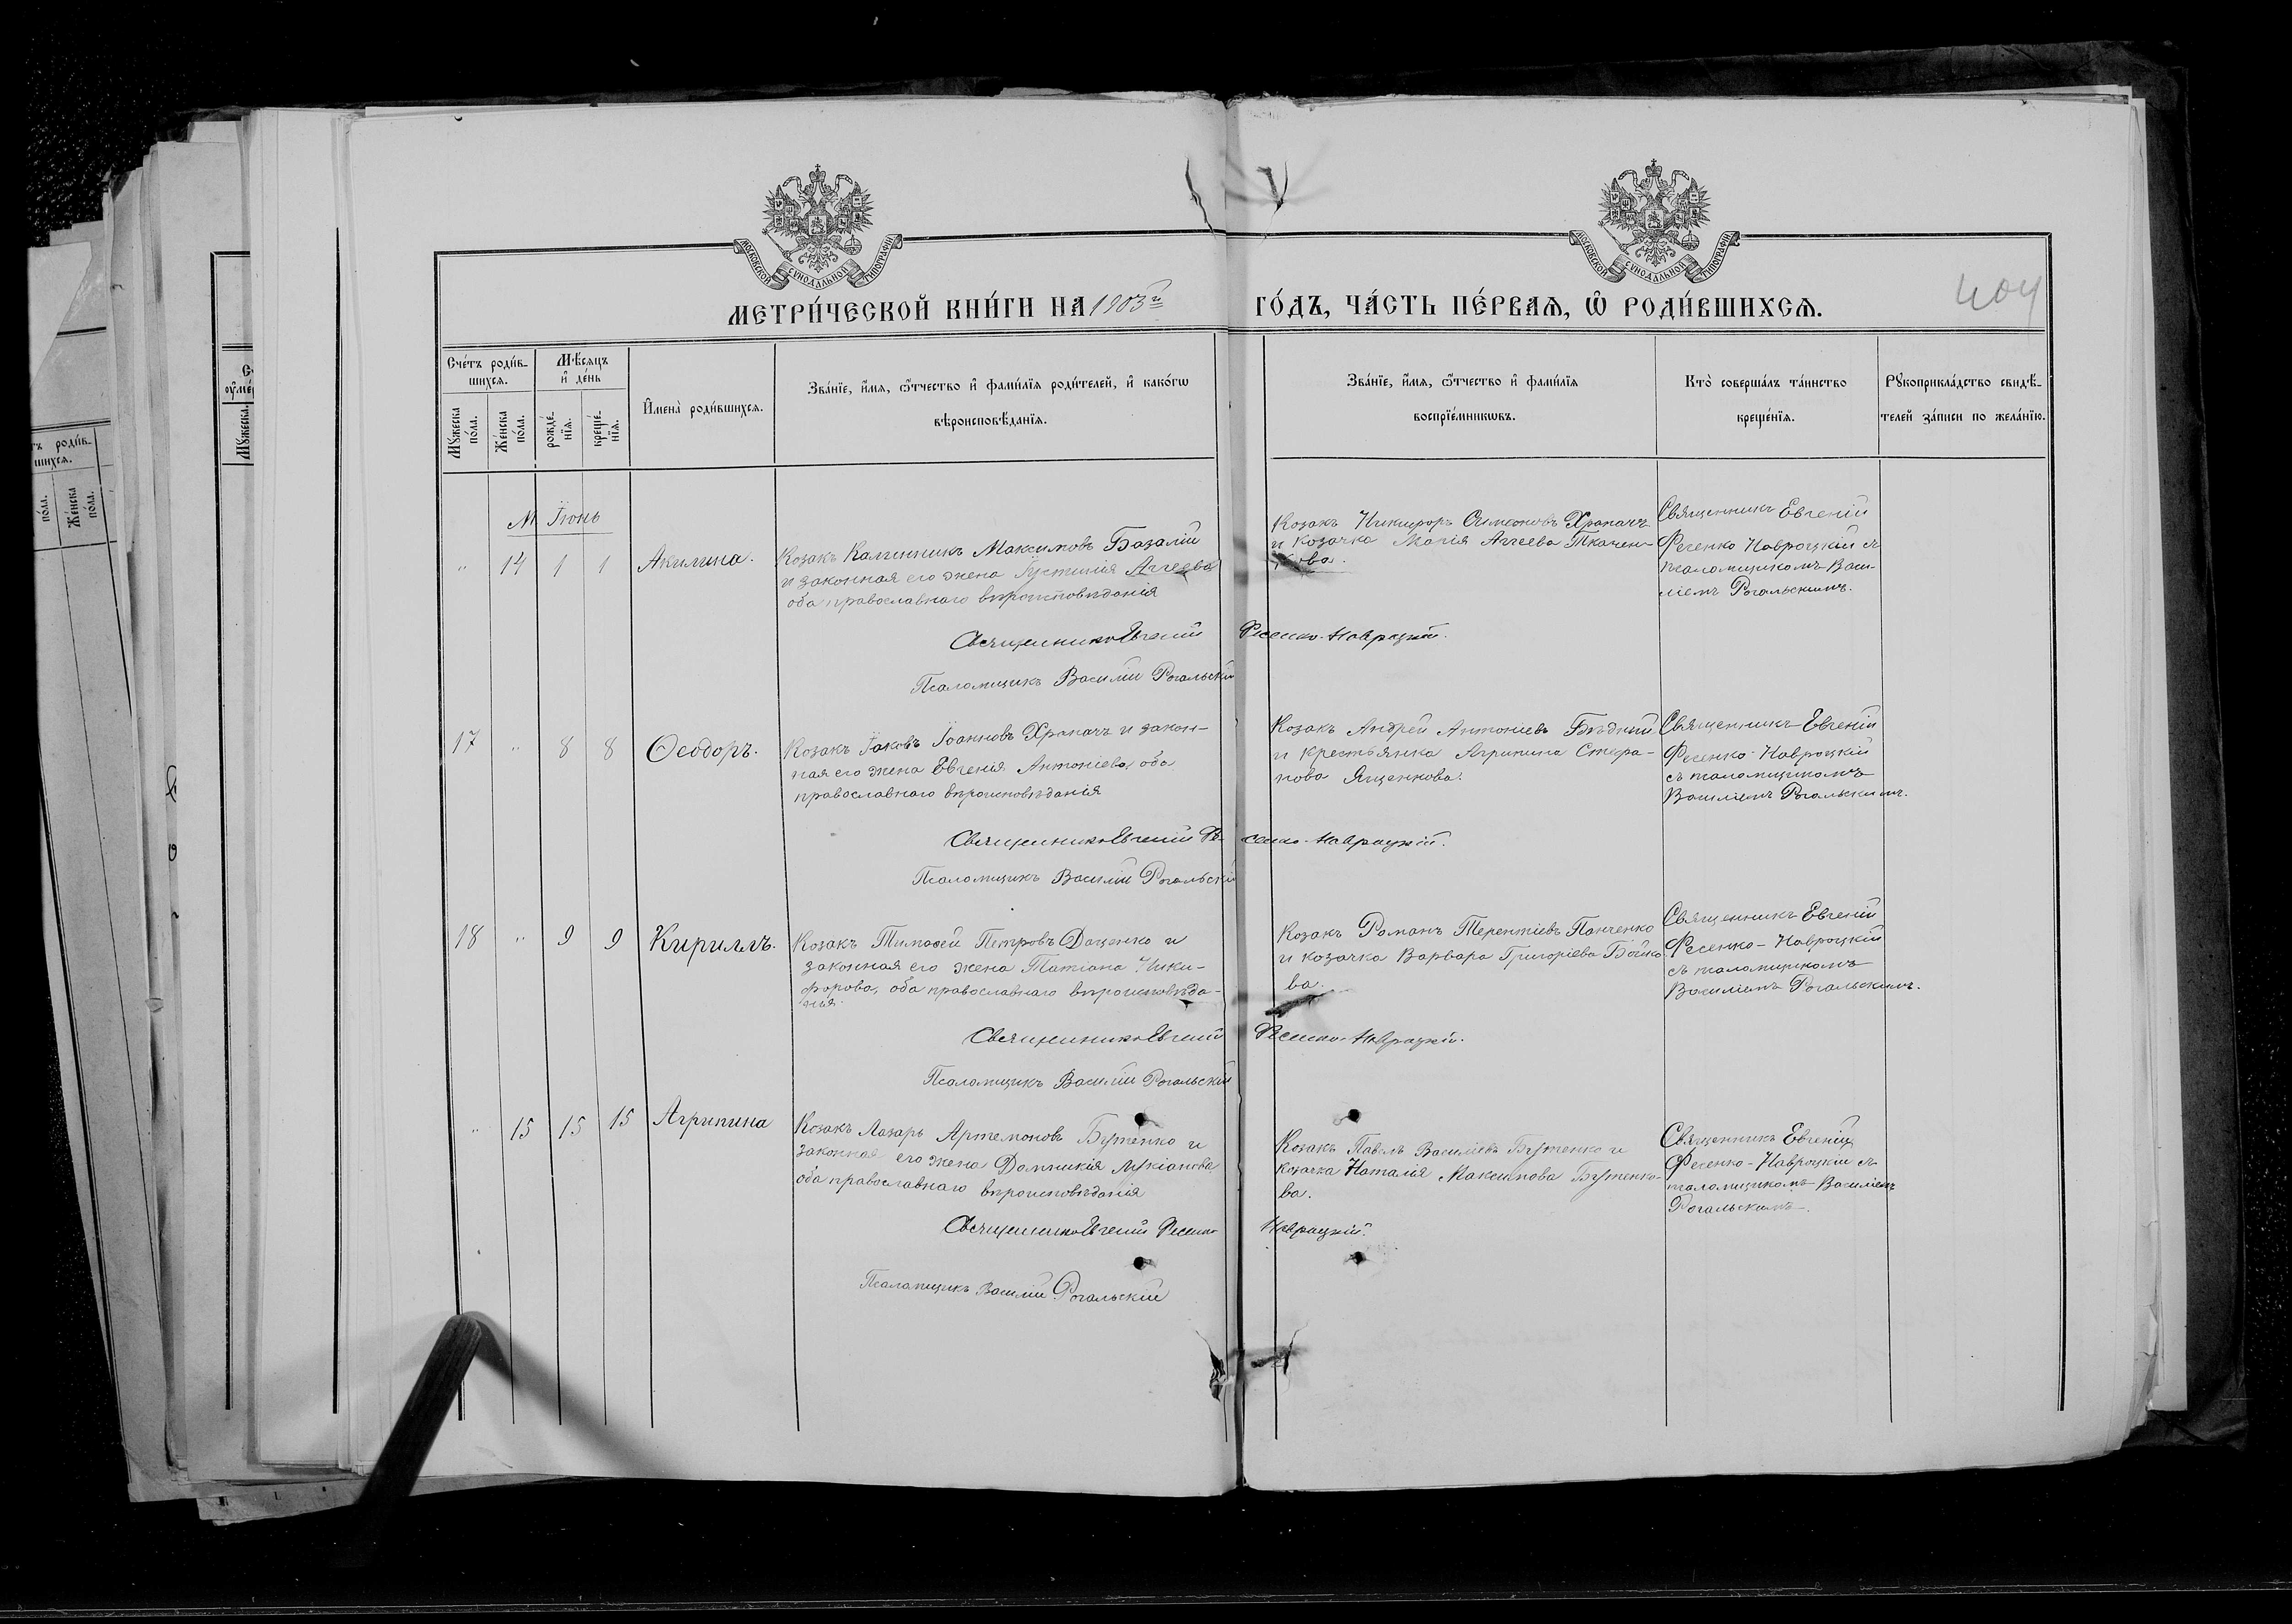 МОСКОВСКОЙ СѴНОДАЛЬНОЙ ТИПОГРАФІИ
МОСКОВСКОЙ СѴНОДАЛЬНОЙ ТИПОГРАФІИ
МЕТРИ́ЧЕСКОЙ КНИ́ГИ НА 1903 г. ГО́ДЪ, ЧА́СТЬ ПЕ́РВАѦ, Ѽ РОДИ́ВШИХСѦ.
404
Сче́тъ роди́в-
шихсѧ.
Мѣ́сѧцъ
и҆ де́нь
Мꙋ́жеска
по́ла.
Же́нска
по́ла.
рожде́-
нїѧ.
креще́-
нїѧ.
И҆мена̀ роди́вшихсѧ.
Зва́нїе, и҆́мѧ, ѻ҆́тчество и҆ фами́лїѧ роди́телей, и҆ како́гѡ
вѣроисповѣ́данїѧ.
Зва́нїе, и҆́мѧ, ѻ҆́тчество и҆ фами́лїѧ
воспрїе́мникѡвъ.
Кто̀ соверша́лъ та́инство
креще́нїѧ.
Рꙋкоприкла́дство свидѣ́-
телей за́писи по жела́нїю.
М Іюнь
" 14 1 1 Акилина.
Козакъ Каллиникъ Максимовъ Базалій
и законная его жена Іустинія Аггеева
оба православнаго вѣроисповѣданія
Козакъ Никифоръ Симеоновъ Храпачъ
и козачка Марія Аггеева Ткачен-
кова.
Священникъ Евгеній
Фесенко Навроцкій съ
псаломщикомъ Васи-
ліемъ Рогальскимъ.
Священникъ Евгеній Фесенко-Навроцкій.
Псаломщикъ Василій Рогальскій
17 " 8 8 Ѳеодоръ.
Козакъ Іаковъ Іоанновъ Храпачъ и закон-
ная его жена Евгенія Антоніева, оба
православнаго вѣроисповѣданія
Козакъ Андрей Антоніевъ Бѣдный
и крестьянка Агрипина Стефа-
нова Ященкова.
Священникъ Евгеній
Фесенко-Навроцкій
съ псаломщикомъ
Василіемъ Рогальскимъ.
Священникъ Евгеній Фе- сенко-Навроцкій.
Псаломщикъ Василій Рогальскій
18 " 9 9 Кириллъ.
Козакъ Тимофей Петровъ Даценко и
законная его жена Татіана Ники-
форова, оба православнаго вѣроисповѣда-
нія.
Козакъ Романъ Терентіевъ Панченко
и козачка Варвара Григоріева Бойко-
ва.
Священникъ Евгеній
Фесенко-Навроцкій
съ псаломщикомъ
Василіемъ Рогальскимъ.
Священникъ Евгеній Фесенко-Навроцкій.
Псаломщикъ Василій Рогальскій
" 15 15 15 Агрипина
Козакъ Лазарь Артемоновъ Бутенко и
законная его жена Домникія Лукіанова
оба православнаго вѣроисповѣданія
Козакъ Павелъ Василіевъ Бутенко и
козачка Наталія Максимова Бутенко-
ва.
Священникъ Евгеній
Фесенко-Навроцкій съ
псаломщикомъ Василіемъ
Рогальскимъ.
Священникъ Евгеній Фесенко Навроцкій.
Псаломщикъ Василій Рогальскій